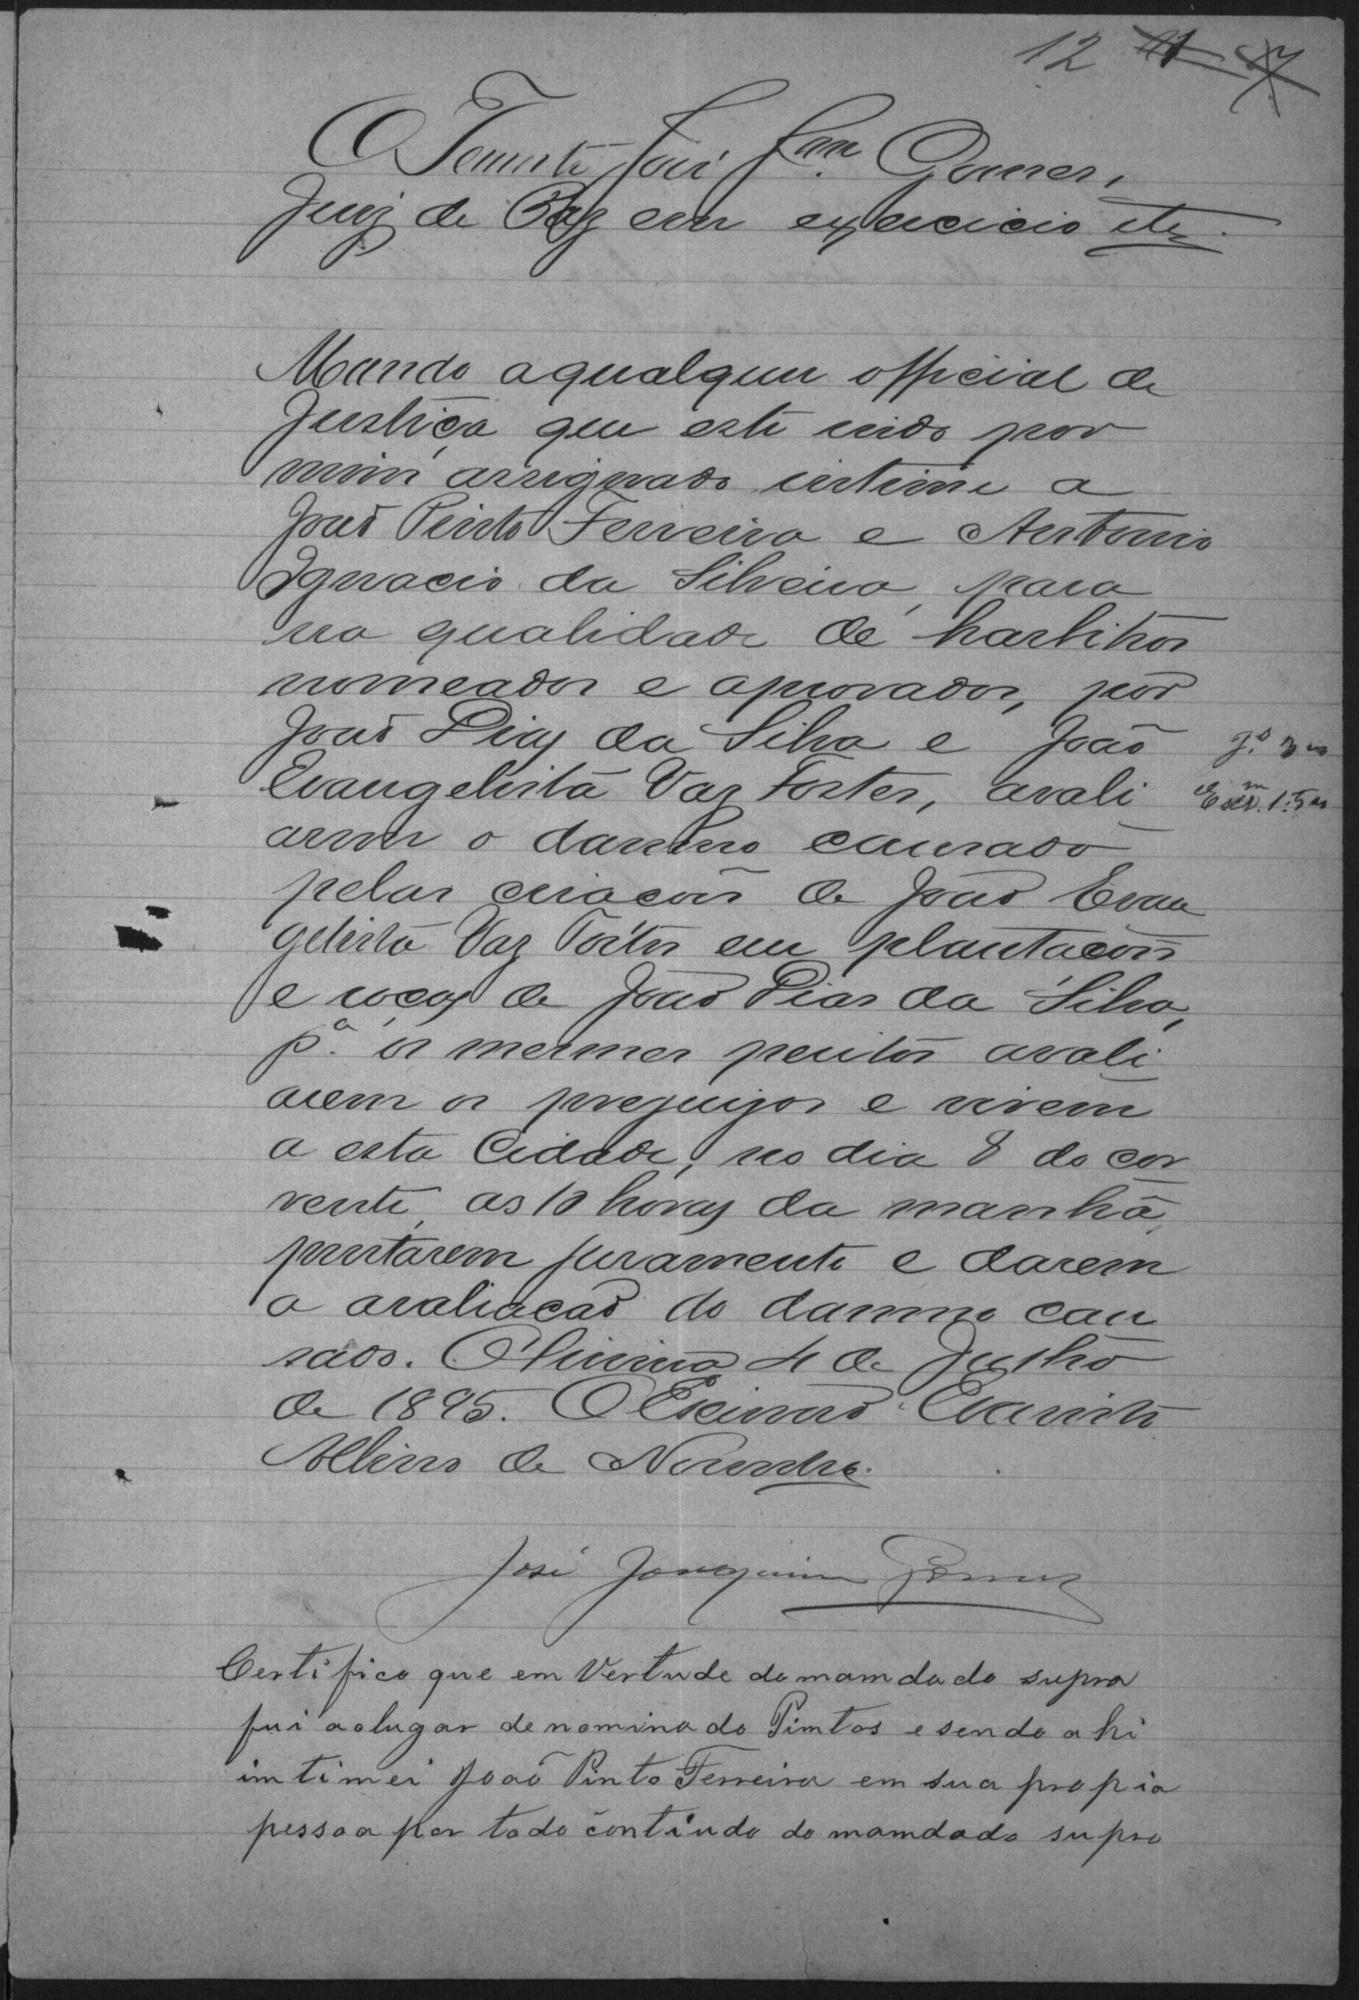 12
O Tenente José Jqm. Gomes,
Juiz de Paz em exercicio etc.
Mando aqualquer official de
Justiça que este indo por
mim assignado intime a
João Pinto Ferreira e Antonio
Ignacio da Silveira, para
na qualidade de harbitros
nomeados e aprovados, por
João Dias da Silva e João
Evangelista Vaz Fortes, avali
arem o damno causado
pelas criacões de João Evan
gelista Vaz Fortes em plantacões
e roças de João Dias da Silva,
pa. os mesmos peritos avali
arem os prejuizos e virem
a esta Cidade, no dia 8 do cor
rente, as 10 horas da manhã,
prestarem juramento e darem
a avaliacão do damno cau
sado. Oliveira 4 de Julho
de 1895. O Escrivão Evaristo
Albino de Noronha.
José Joaquim Gomes
Certifico que em Vertude do mamdado supra
fui ao lugar denominado Pimtos e sendo ahi
imtimei João Pinto Ferreira em sua propia
pessoa por todo contiudo do mamdado supra